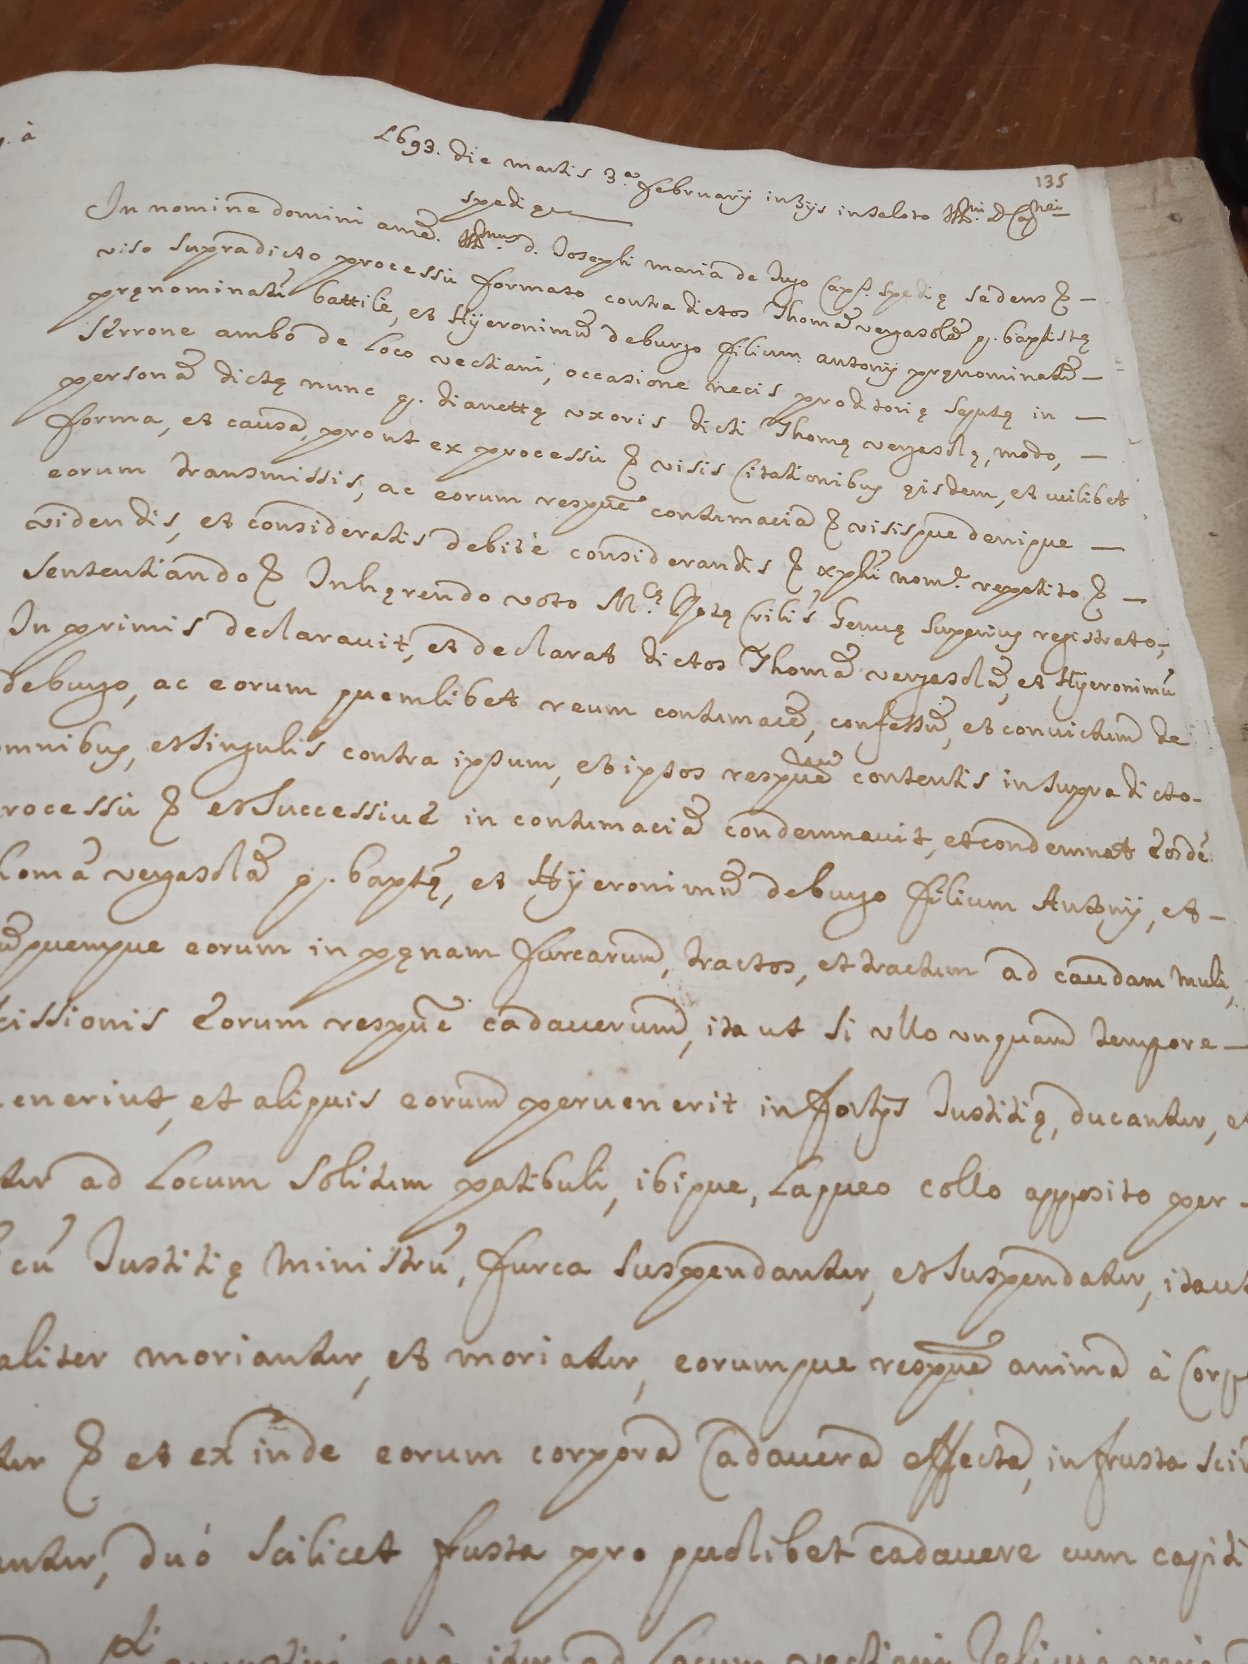 135
. à
1693. die martis 3.ª february in 3ijs in saloto Ill.mi D. Cap.nei
spedię
In nomine domini amẽ. Ill.mus d. Joseph maria de Jugo Cap.s Spedię sedens &
viso supradicto processu formato contra dictos Thomã vergassolã q. baptistę
pręnominatũ battilè, et Hyeronimũ deburgo filium antonij pręnominatũ
serrone ambo de loco vectiani, occasione necis proditorię sequtę in
personã dictę nunc q. dianettę uxoris dicti Thomę vergassolę, modo,
forma, et causa, prout ex processu & visis Citationibus eisdem, et cuilibet
eorum transmissis, ac eorum respuè contumacia & visisque denique
videndis, et consideratis debitè considerandis & xpĩ nom.e repetito &
Sententiando & Inhęrendo voto M.cę Rotę Crilis Genuę superius registrato,
In primis declarauit, et declarat dictos Thomã vergassolã, et Hyeronimũ
deburgo, ac eorum quemlibet reum contumacẽ, confessũ, et convictum de
omnibus, et singulis contra ipsum, et ipsos respuè contentis in supradicto
rocessu & et successiuè in contumaciã condemnauit, et condemnat eosdẽ
homã vergassolã q. baptę, et Hyeronimũ deburgo filium Antonij, et
quemque eorum in pęnam furcarum, tractos, et tractum ad caudam muli,
cissionis eorum respuè cadauerum, ita ut si ullo unquam tempore
enerint, et aliquis eorum peruenerit in fortijs Justitię, ducantur, et
tur ad locum solitum patibuli, ibique, laqueo collo apposito per
cũ Justitię ministrũ, furca suspendantur, et suspendatur, itaut
aliter moriantur, et moriatur, eorumque respuè anima à Corp
tur & et exinde eorum corpora Cadauera effecta, in frusta sci
antur, duo scilicet frusta pro quolibet cadauere cum capiti
ad locum vectiani